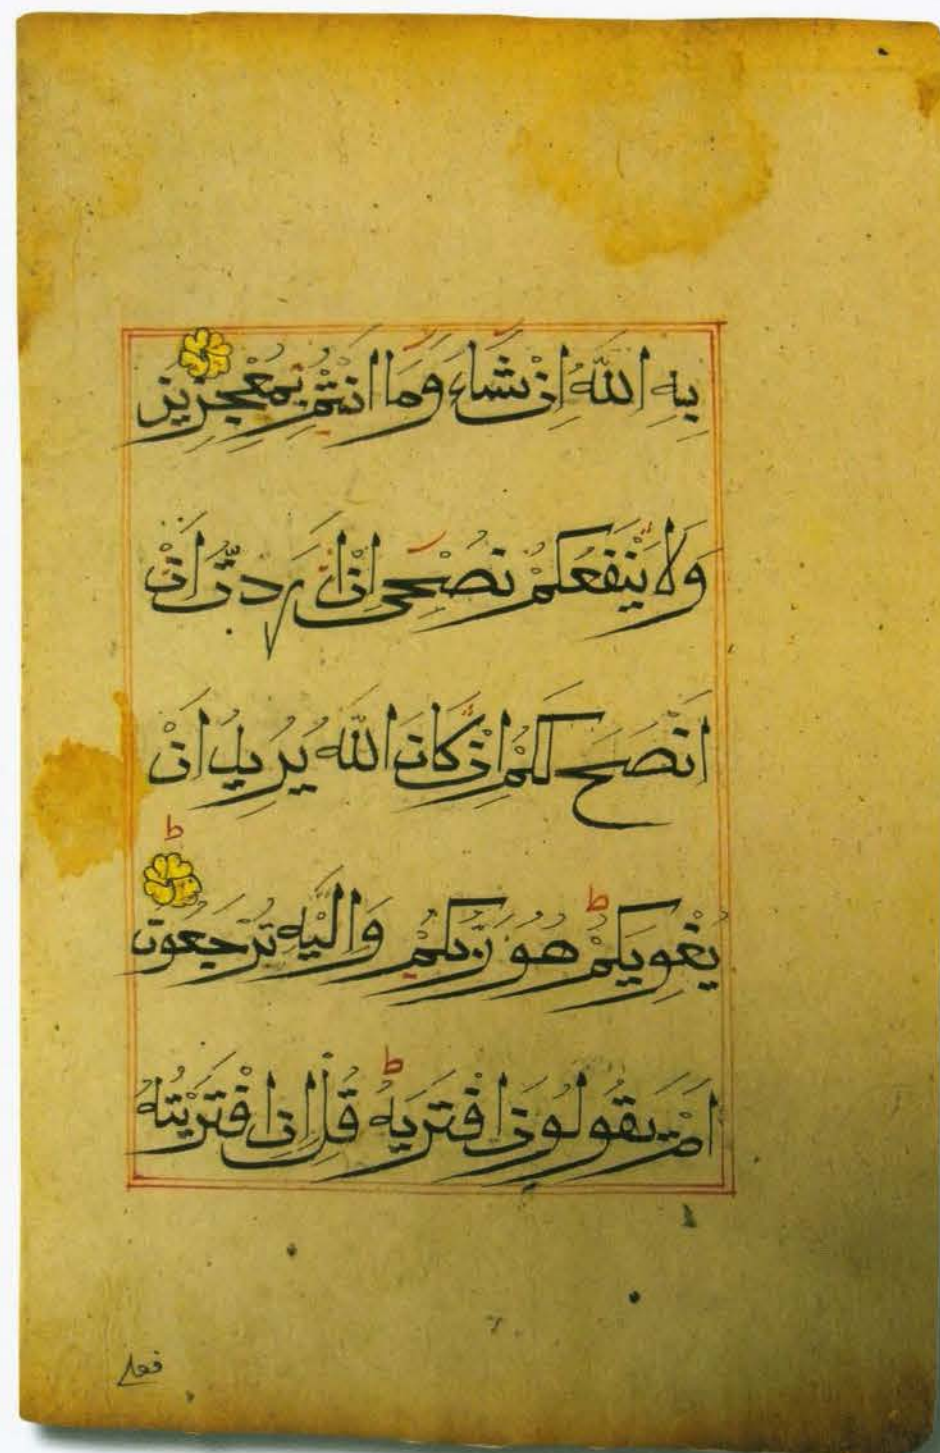 بِهِ اللَّهُ اِنْ شَاءَ وَمَا اَنْتُمْ بِمُعْجِزِيْنَ
وَلَا يَنْفَعُكُمْ نُصْحِى اِنْ اَرَدْتُّ اَنْ
اَنْصَحَ لَكُمْ اِنْ كَانَ اللَّهُ يُرِيْدُ اَنْ
ط
يُغْوِيَكُمْ ط هُوَ رَبُّكُمْ وَاِلَيْهِ تُرْجَعُوْنَ
اَمْ يَقُوْلُوْنَ افْتَرَيهُ ط قُلْ اِنِ افْتَرَيْتُهُ
فعلى